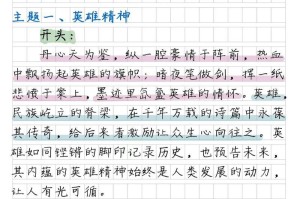 主题一、英雄精神
开头:
丹心天为鉴,纵一腔豪情于阵前,热血
中飘扬起英雄的旗帜;暗夜笔做剑,挥一纸
悲愤于案上,墨迹里氤氲英雄的情怀。英雄,
民族屹立的脊梁,在千年万载的诗篇中永葆
其传奇,给后来者激励让众生心向往之。英
雄如同铿锵的脚印记录历史,也预告未来,
其内蕴的英雄精神始终是人类发展的动力,
让人有光可循。